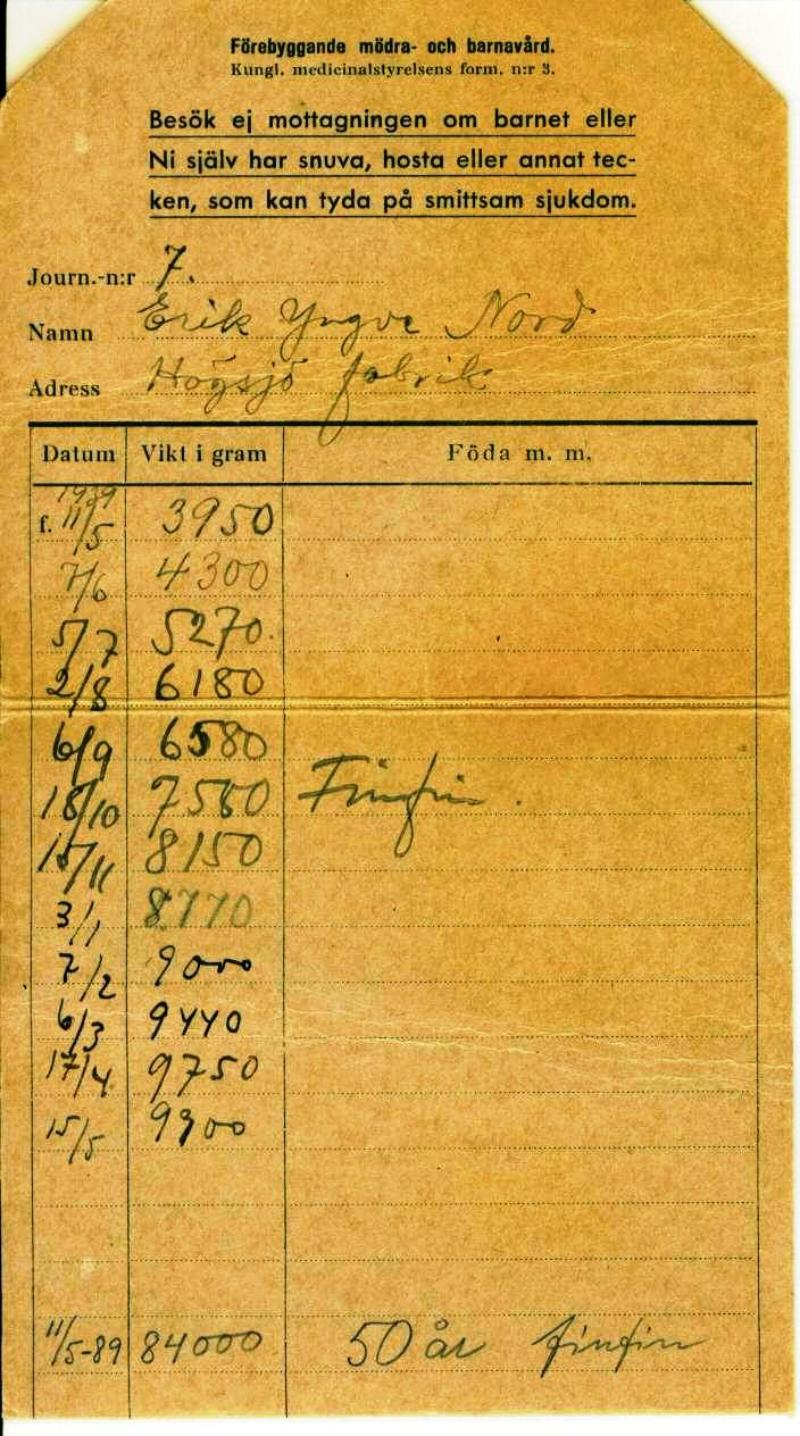 Förebyggande mödra- och barnavård.
Kungl. medicinalstyrelsens form. n:r 3.
Besök ej mottagningen om barnet eller
Ni själv har snuva, hosta eller annat tec-
ken, som kan tyda på smittsam sjukdom.
Journ.-n:r 7.
Namn Erik Yngve Nord
Adress Högsjö fabrik
Datum Vikt i gram Föda m. m.
1939
f. 11/5 3950
7/6 4300
5/7 5270
2/8 6180
6/9 6580
18/10 7560 Finfin.
15/11 8150
3/1 8770
7/2 9000
6/3 9440
17/4 9750
15/5 9900
11/5-89 84000 50 år finfin